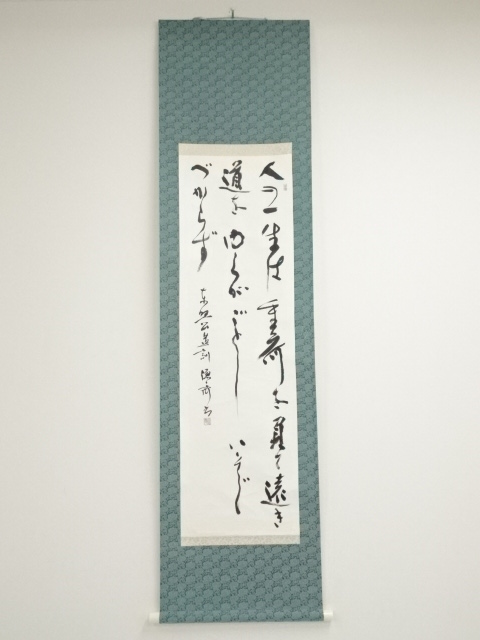 人の一生は重荷を負て遠き
道をゆくがごとしいそぐ
べからず
東照公遺訓